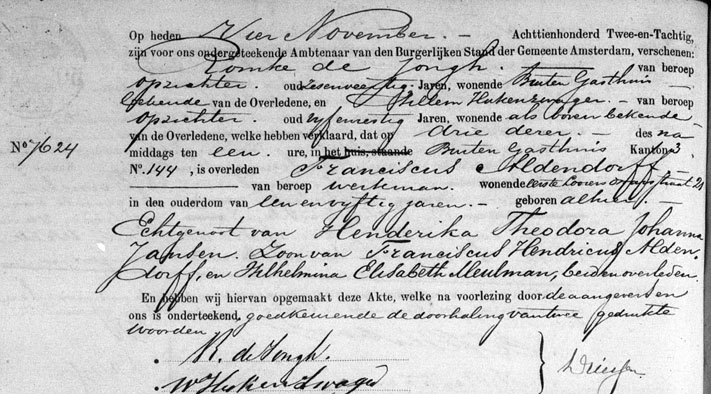 Op heden Vier November. – Achttienhonderd Twee-en-Tachtig,
zijn voor ons ondergeteekende Ambtenaar van den Burgerlijken Stand der Gemeente Amsterdam, verschenen:
Romke de Jongh. – van beroep
opzichter. oud zesenveertig Jaren, wonende Buiten Gasthuis –
bekende van de Overledene, en Willem Hukenzwager. – van beroep
opzichter oud vyfenvestig Jaren, wonende als boven bekende
van de Overledene, welke hebben verklaard, dat op drie dezer. – des na
middags ten een. – ure, in het huis, staande Buiten Gasthuis Kanton 3
No. 7624
No. 144, is overleden Franciscus Aldendorff –
van beroep werkman. wonende eerste straat 21
in den ouderdom van een en vyftig jaren. – geboren alhier. –
Echtgenoot van Henderika Theodora Johanna
Jansen. Zoon van Franciscus Hendricus Alden
dorff, en Wilhelmina Elisabeth Meulman, beiden overleden.
En hebben wij hiervan opgemaakt deze Akte, welke na voorlezing door de aangevers en
ons is onderteekend, goedkeurende de doorhaling van twee gedrukte
woorden
R. de Jongh.